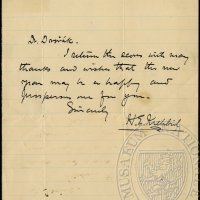 Dr. Dvořák.
I return the scores with many
thanks and wishes that the new
year may be a happy and
prosperous one for you.
Sincerely
H. E. Krehbiel
MUSAEUM